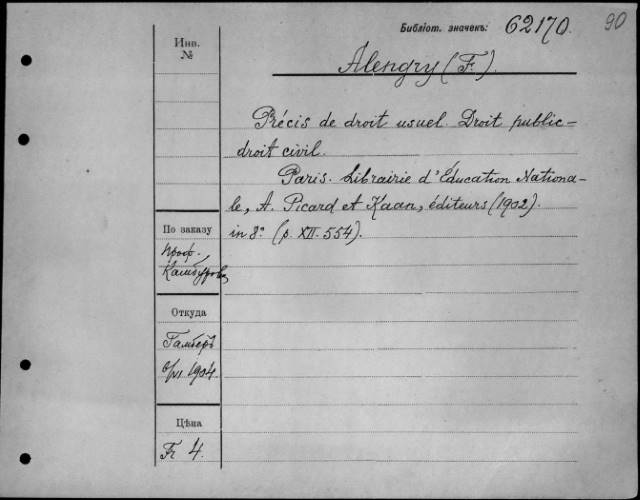 Библіот. значекъ: 62170. 90
Инв.
№
Alengry (F).
Précis de droit usuel. Droit public-
droit civil.
Paris. Librairie d'Éducation Nationa-
le, A. Picard et Kaan, éditeurs (1902).
in 8° (p. XII-554).
По заказу
проф.
Камбурова
Откуда
1904
Цѣна
Fr 4.